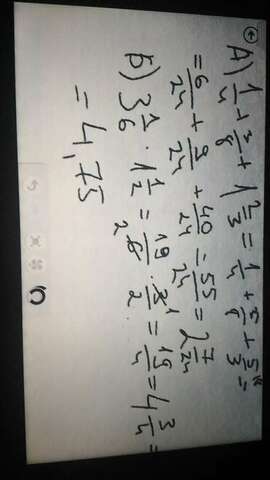 А) 1/4 + 3/8 + 1 2/3 = 1/4 + 3/8 + 5/3 =
= 6/24 + 9/24 + 40/24 = 55/24 = 2 7/24
Б) 3 1/6 · 1 1/2 = 19/6 · 3/2 = 19/4 = 4 3/4 =
= 4,75